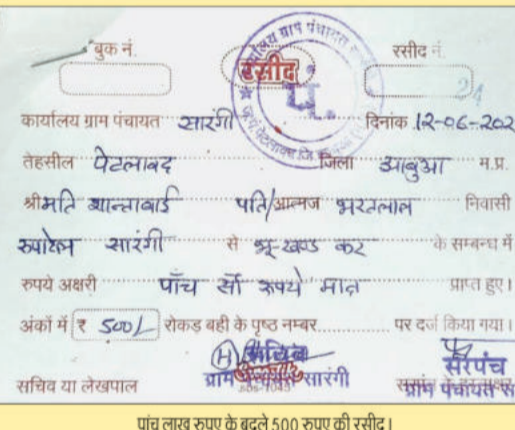 बुक नं.
रसीद
रसीद नं.
24
कार्यालय ग्राम पंचायत सारंगी दिनांक 12-06-202
तेहसील पेटलावद जिला झाबुआ म.प्र.
श्रीमति शान्ताबाई पति/आत्मज भरतलाल निवासी
सारंगी से भू-खण्ड कर के सम्बन्ध में
रुपये अक्षरी पाँच सौ रूपये मात्र प्राप्त हुए।
अंकों में ₹ 500/- रोकड बही के पृष्ठ नम्बर............ पर दर्ज किया गया।
सचिव सरपंच
सचिव या लेखपाल ग्राम पंचायत सारंगी ग्राम पंचायत स
पांच लाख रुपए के बदले 500 रुपए की रसीद।